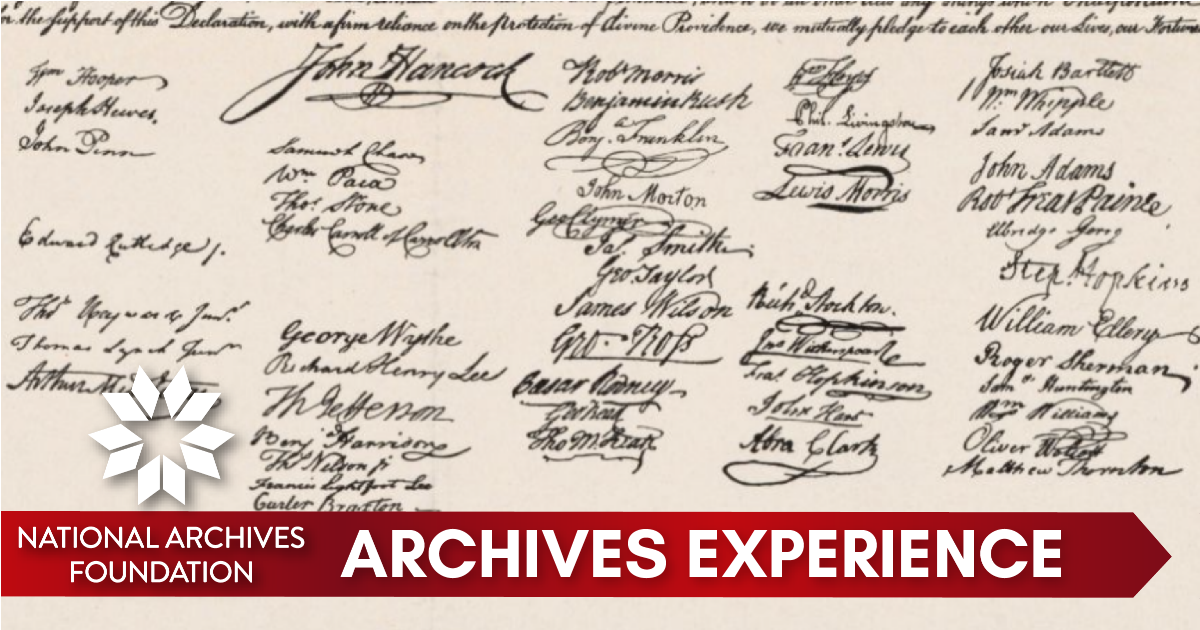 for the support of this Declaration, with a firm reliance on the protection of divine Providence, we mutually pledge to each other our Lives, our Fortunes
Wm Hooper
Joseph Hewes,
John Penn
Edward Rutledge /.
Thos Heyward Junr.
Thomas Lynch Junr
Arthur Middleton
John Hancock
Samuel Chase
Wm Paca
Thos Stone
Charles Carroll of Carrollton
George Wythe
Richard Henry Lee
Th Jefferson
Benj Harrison
Thos Nelson jr
Francis Lightfoot Lee
Carter Braxton
Robt Morris
Benjamin Rush
Benja Franklin
John Morton
Geo Clymer
Jas. Smith
Geo. Taylor
James Wilson
Geo. Ross
Caesar Rodney
Geo Read
Tho M:Kean
Wm Floyd
Phil. Livingston
Frans. Lewis
Lewis Morris
Richd. Stockton
Jno Witherspoon
Fras. Hopkinson
John Hart
Abra Clark
Josiah Bartlett
Wm Whipple
Saml Adams
John Adams
Robt Treat Paine
Elbridge Gerry
Step. Hopkins
William Ellery
Roger Sherman
Saml Huntington
Wm Williams
Oliver Wolcott
Matthew Thornton
NATIONAL ARCHIVES
FOUNDATION
ARCHIVES EXPERIENCE